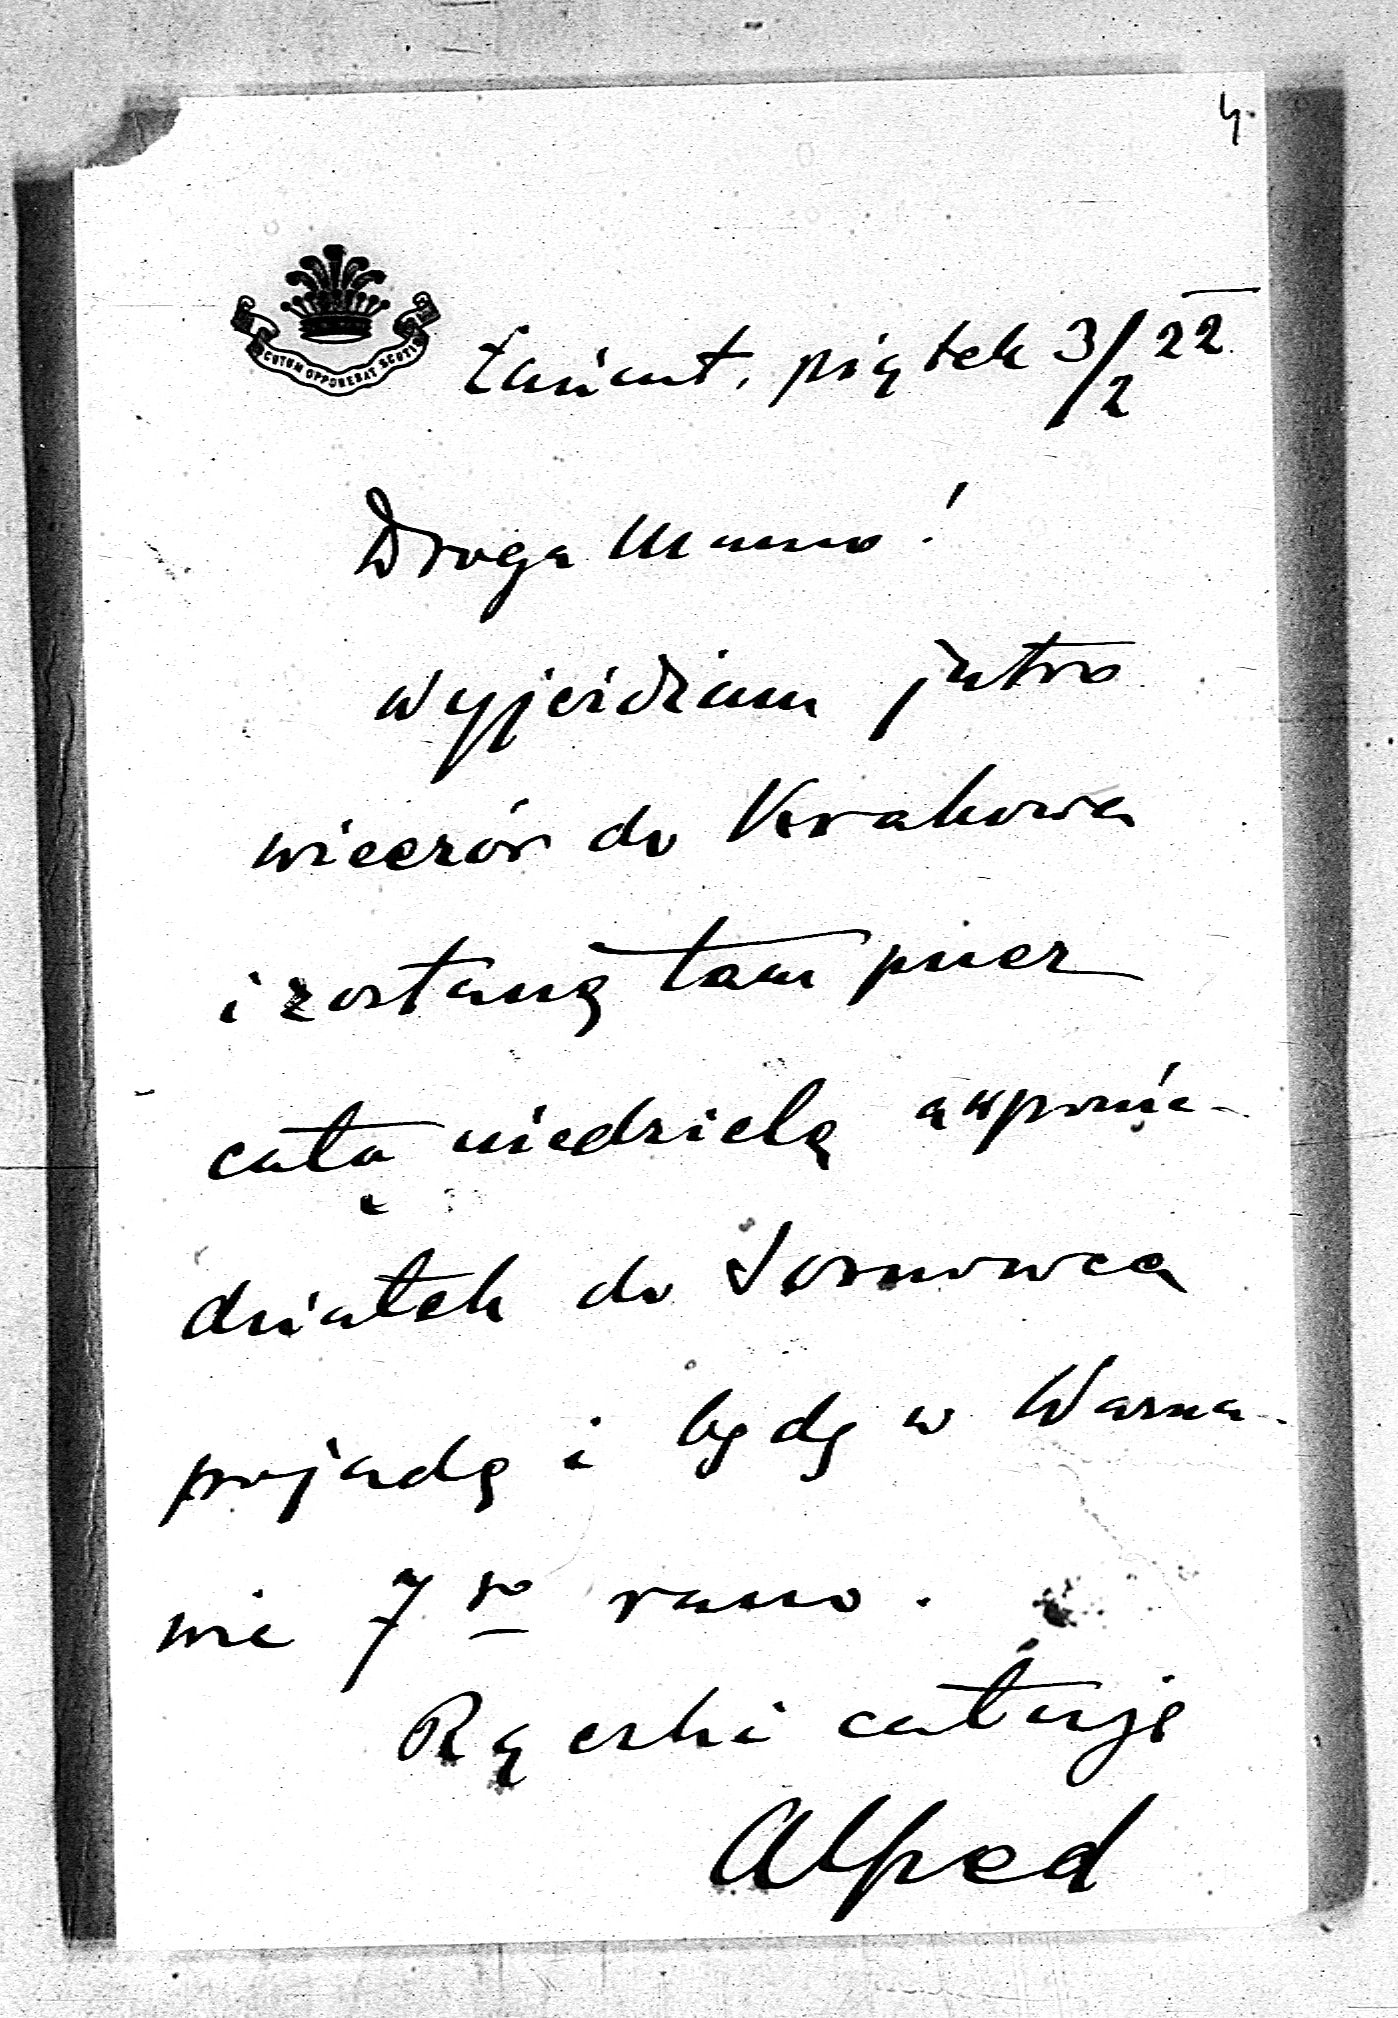 4.
SCUTUM OPPONEBAT SCUTIS
Łańcut, piątek 3/2 22
Droga Mamo!
Wyjeżdżam jutro
wieczór do Krakowa
i zostanę tam przez
całą niedzielę a w ponie-
działek do Sosnowca
pojadę i będę w Warsza-
wie 7go rano.
Rączki całuję
Alfred